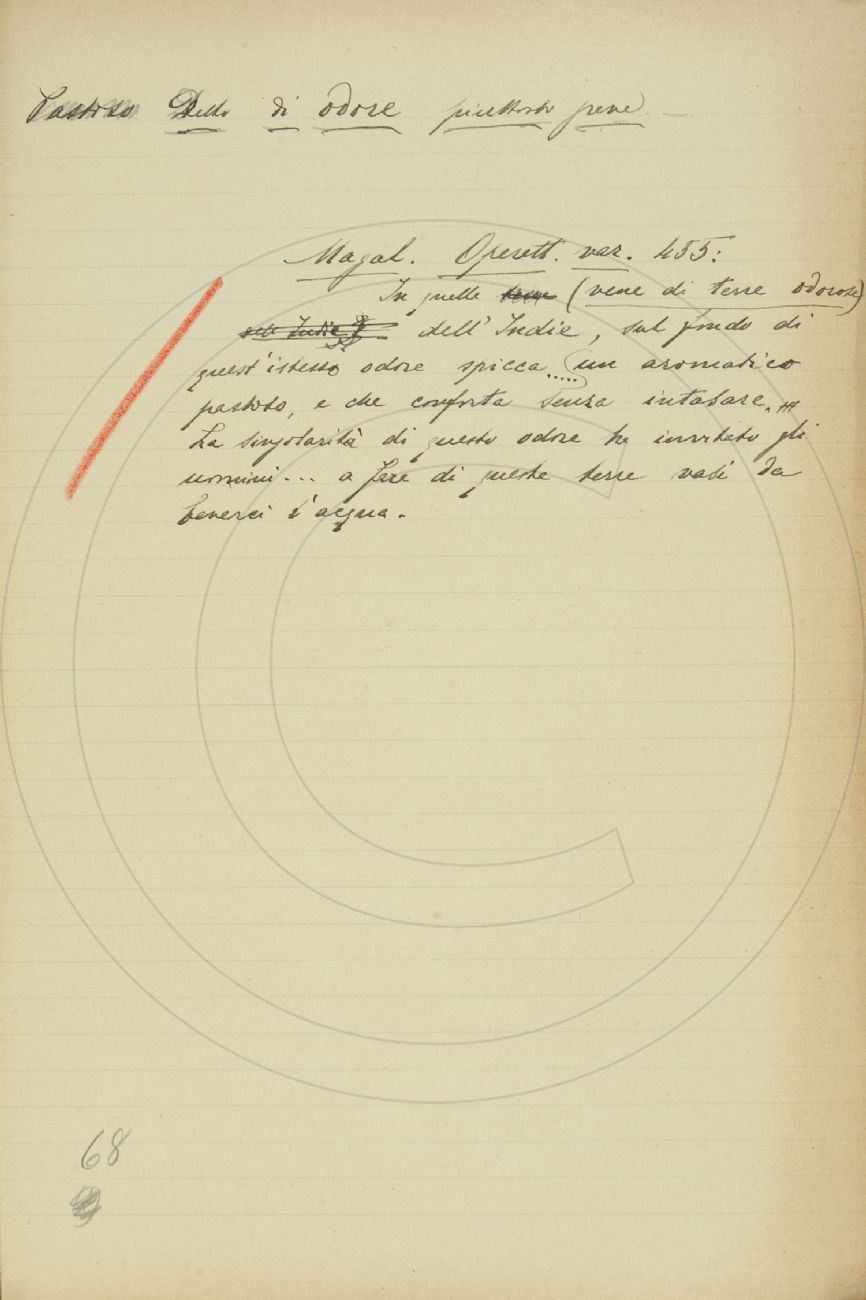 Pastoso Detto di odore piuttosto greve
Magal. Operett. var. 455:
In quelle (vene di terre odorose)
dell'Indie, sul fondo di
quest'istesso odore spicca..... un aromatico
pastoso, e che conforta senza intasare.
La singolarità di questo odore ha invitato gli
uomini... a fare di queste terre vasi da
beverci l'acqua.
68